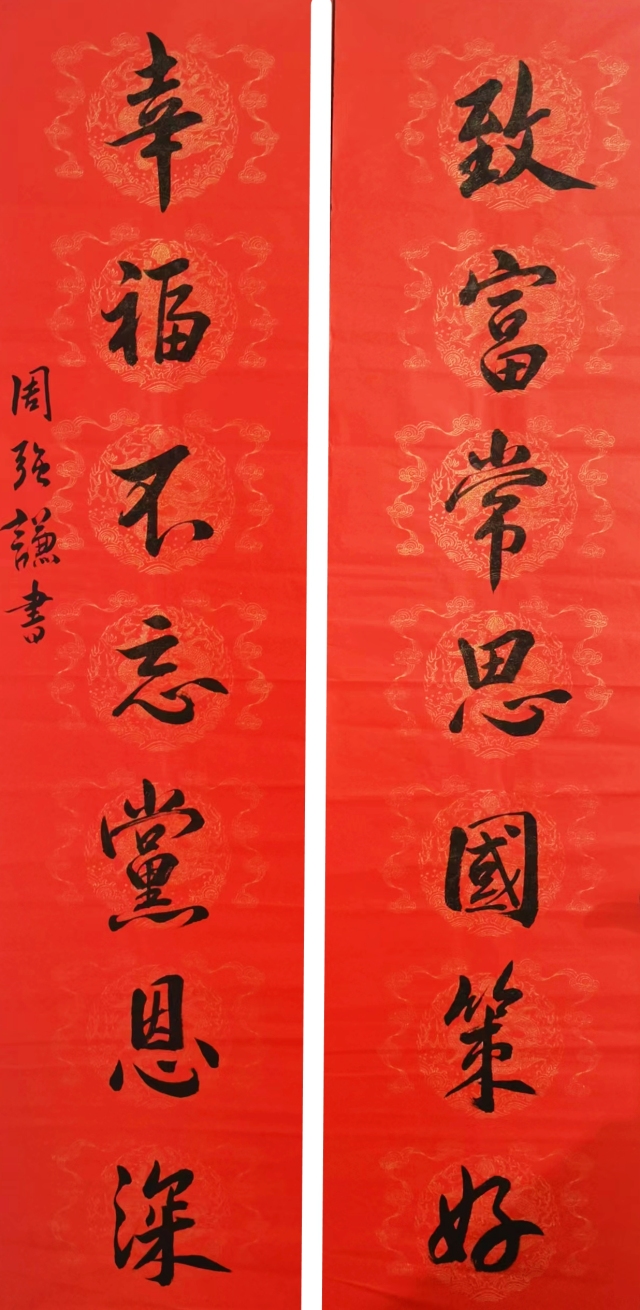 致富常思國策好
幸福不忘黨恩深
周強謙書